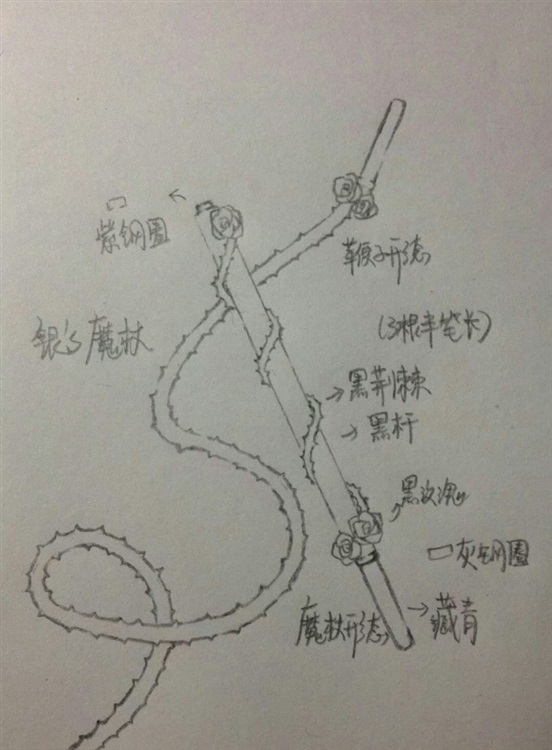 紫钢圈
鞭子形态
银's 魔杖
(3根半笔长)
黑荆棘
黑杆
黑玫瑰
灰钢圈
魔杖形态
藏青